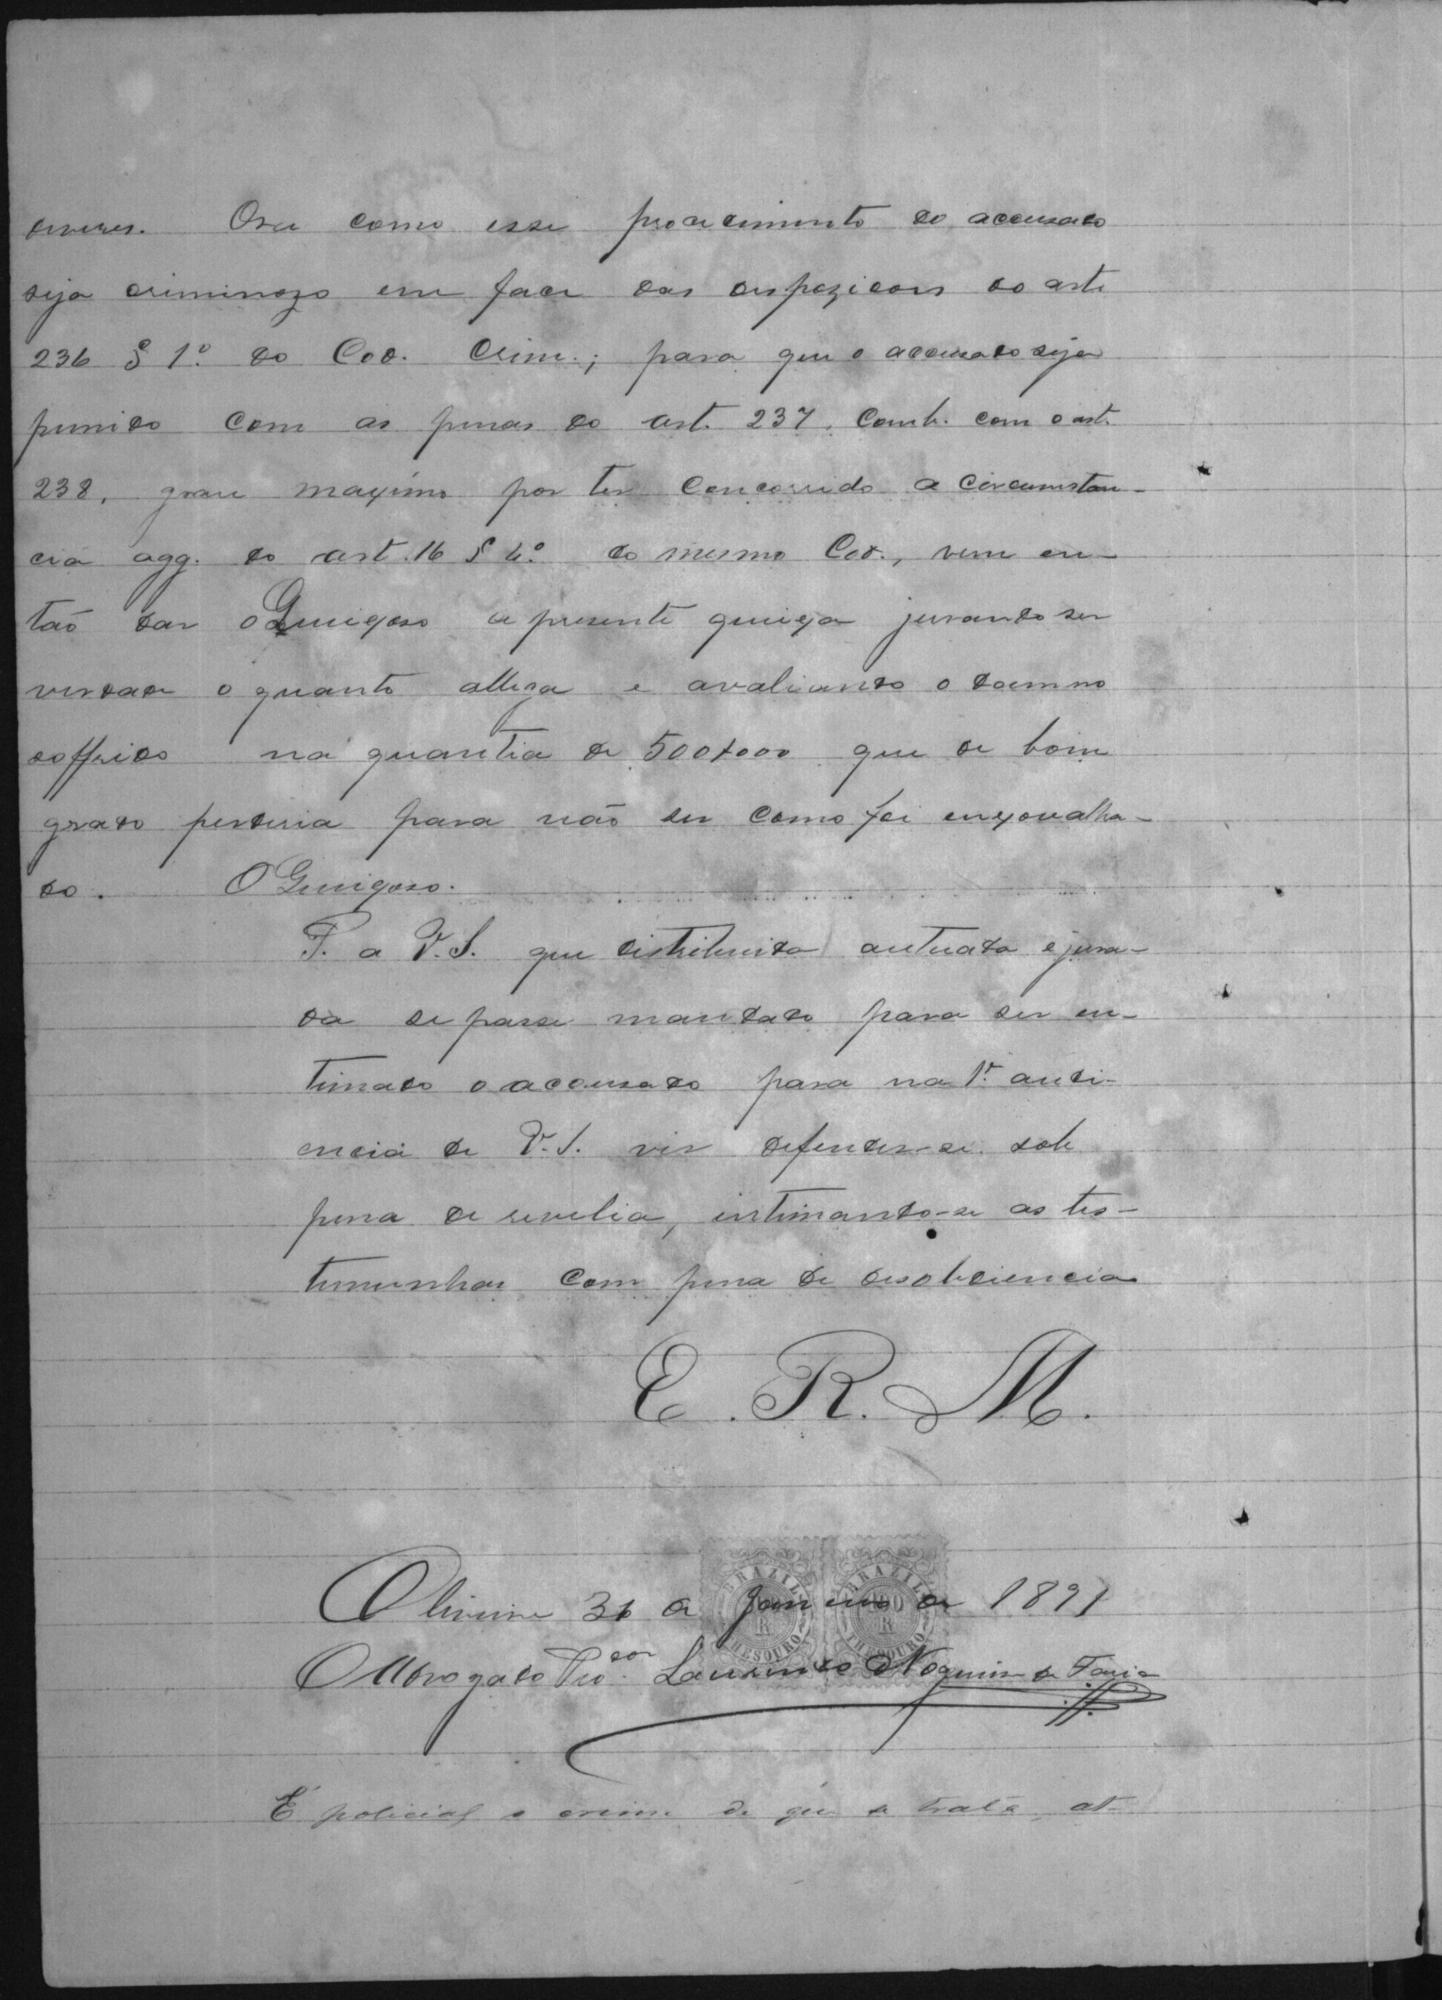 deveres. Ora como esse procedimento do accusado
seja criminozo em face das dispozicois do arte
236 § 1º do Cod. Crim.; para que o accusado seja
punido com as penas do art. 237. Comb. com o art.
238, grau maximo por ter concorrido a circumstan-
cia agg. do art. 16 § 4º do mesmo Cod., vem en-
tão dar o Queigoso a presente queixa jurando ser
verdade o quanto allega e avaliando o damno
soffrido na quantia de 500$000 que de bom
grado perderia para não ser como foi enxovalha-
do. O Queigoso.
P. a V.S. que distribuida autuada e jura-
da se passe mandado para ser in-
timado o accusado para na 1ª audi-
encia de V.S. vir defender-se sob
pena de revelia, intimando-se as tes-
temunhas com pena de desobdiencia
E. R. M.
BRAZIL BRAZIL
Oliveira 31 de Janeiro de 1891
THESOURO THESOURO
O Advogado Pro.dor Laurindo Nogueira de Faria
É policial o crime de que se trata, at-